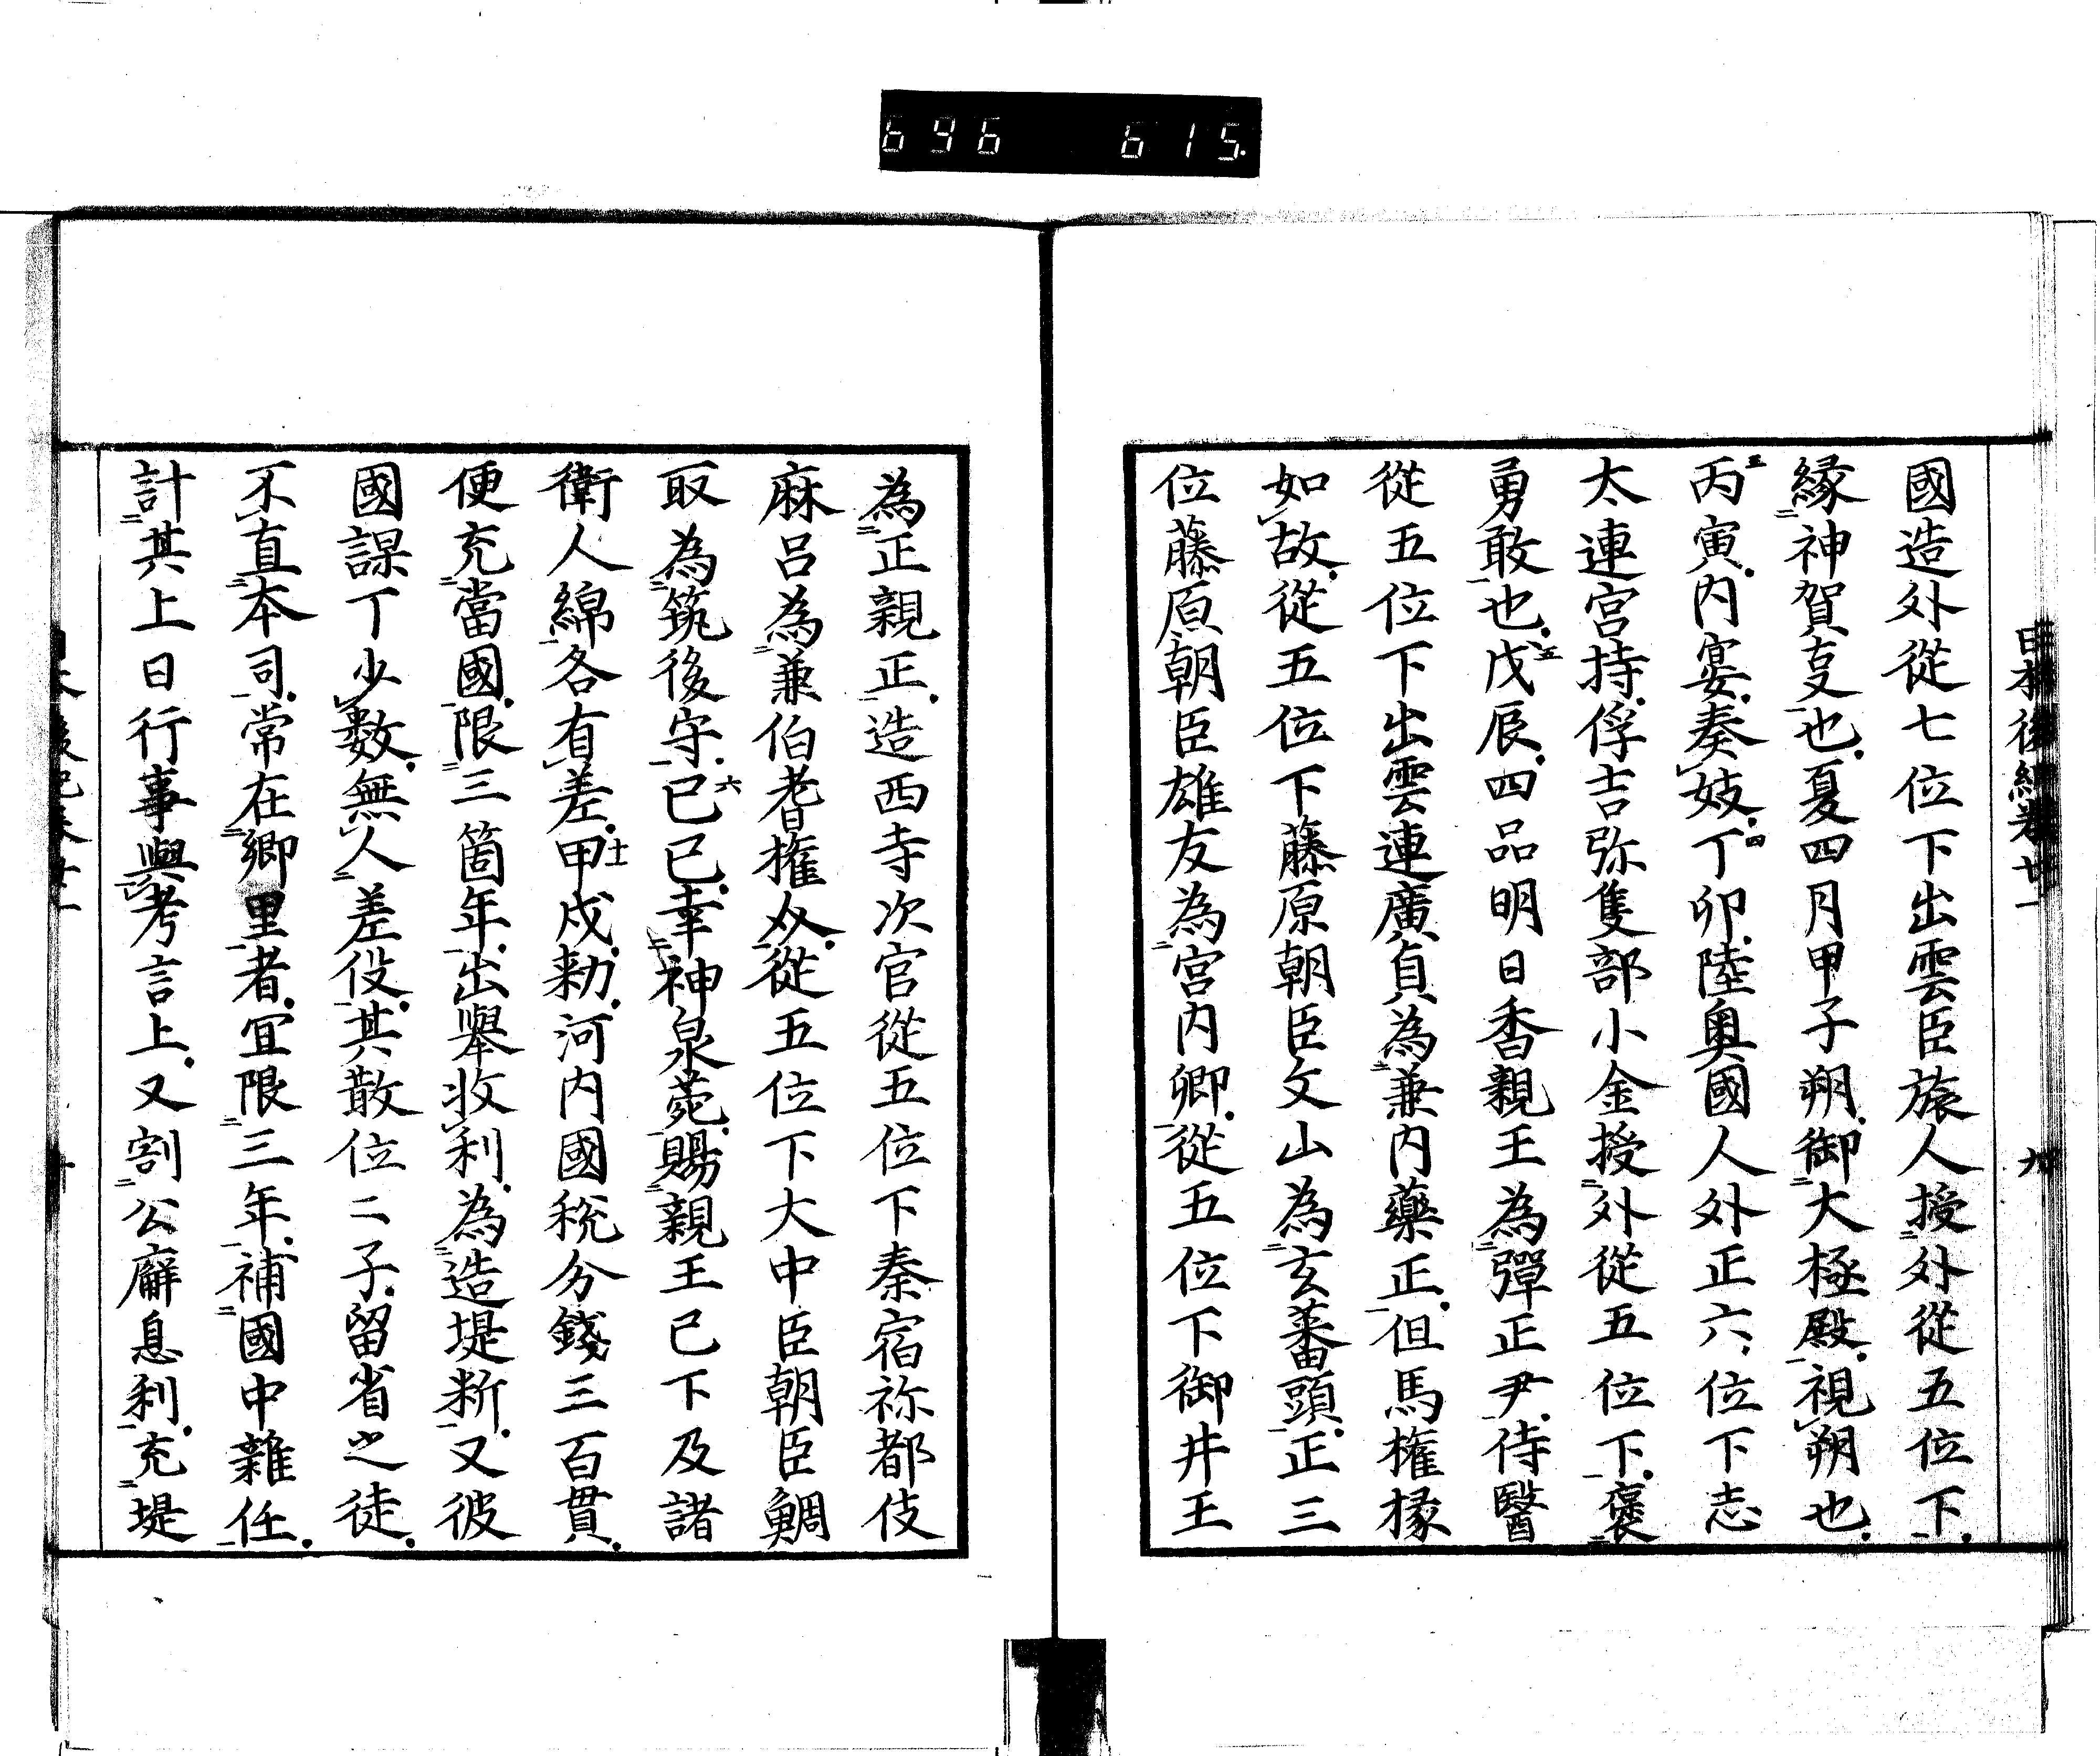 696 615
日本後紀卷廿一 九
國造外從七位下出雲臣旅人授外從五位下
縁神賀㕝也夏四月甲子朔御大極殿視朔也
丙寅内宴奏妓丁卯陸奥國人外正六位下志
三 四
太連宮持俘吉弥隻部小金授外從五位下褒
勇敢也戊辰四品明日香親王為彈正尹侍醫
五
從五位下出雲連廣貞為兼内藥正但馬權掾
如故從五位下藤原朝臣文山為玄蕃頭正三
位藤原朝臣雄友為宮内卿從五位下御井王
為正親正造西寺次官從五位下秦宿祢都伎
麻呂為兼伯耆權介從五位下大中臣朝臣鯛
取為筑後守己巳幸神泉苑賜親王已下及諸
六
衛人綿各有差甲戌勅河内國稅分錢三百貫
十一
便充當國限三箇年出舉收利為造堤断又彼
國課丁少數無人差役其散位二子留省之徒
不直本司常在鄉里者宜限三年補國中雜任
計其上日行事與考言上又割公廨息利充堤